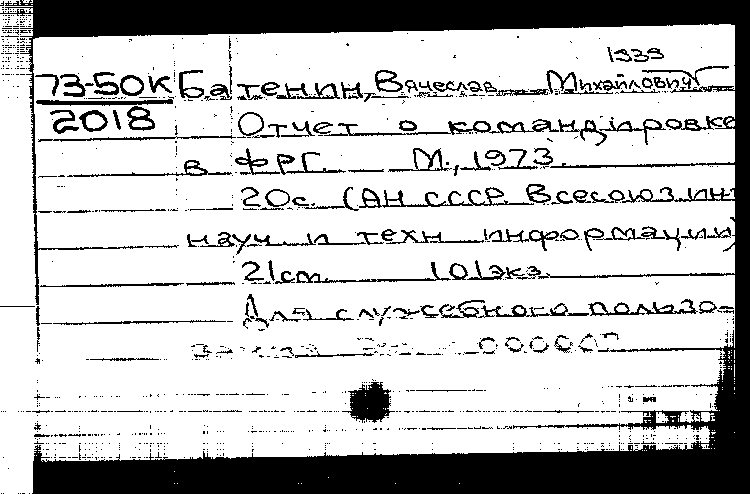 1939
73-50К Батенин, Вячеслав Михайлович
2018 Отчет о командировке
в ФРГ. М., 1973.
20с. (АН СССР. Всесоюз. ин-
науч. и техн. информации)
21cm. 101экз.
Для служебного пользо-
вания